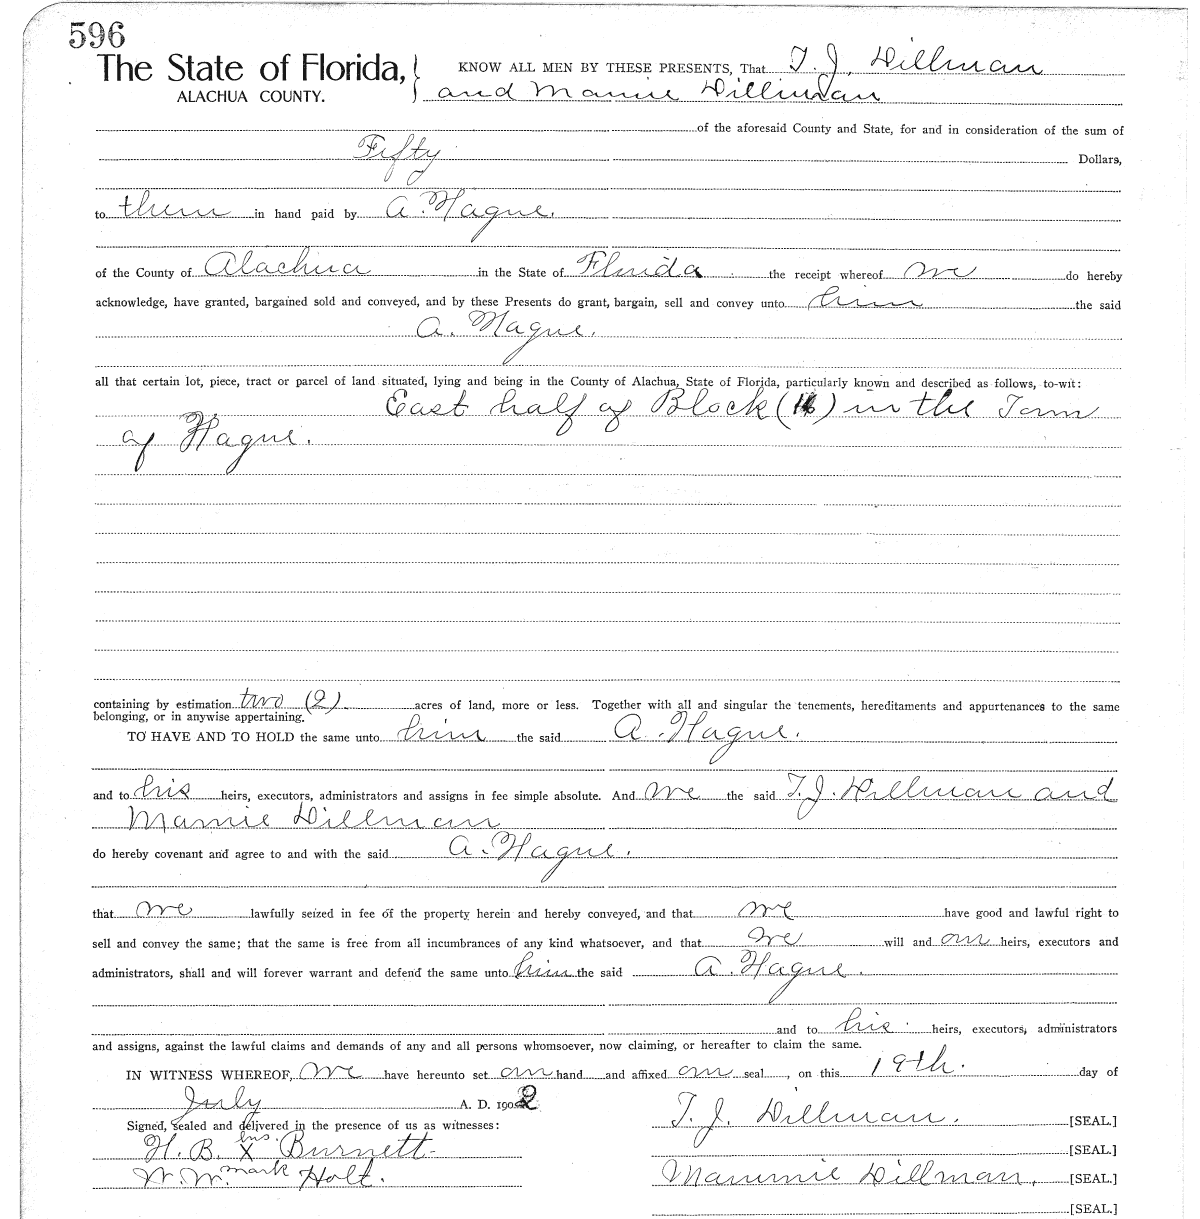 596
The State of Florida, } KNOW ALL MEN BY THESE PRESENTS, That T. J. Dillman
ALACHUA COUNTY. and Mamie Dillman
of the aforesaid County and State, for and in consideration of the sum of
Fifty Dollars,
to them in hand paid by A. Hague.
of the County of Alachua in the State of Florida the receipt whereof we do hereby
acknowledge, have granted, bargained sold and conveyed, and by these Presents do grant, bargain, sell and convey unto him the said
A. Hague.
all that certain lot, piece, tract or parcel of land situated, lying and being in the County of Alachua, State of Florida, particularly known and described as follows, to-wit:
East half of Block ( ) in the Town
of Hague.
containing by estimation two (2) acres of land, more or less. Together with all and singular the tenements, hereditaments and appurtenances to the same
belonging, or in anywise appertaining.
TO HAVE AND TO HOLD the same unto him the said A. Hague.
and to his heirs, executors, administrators and assigns in fee simple absolute. And we the said T. J. Dillman and
Mamie Dillman
do hereby covenant and agree to and with the said A. Hague.
that we lawfully seized in fee of the property herein and hereby conveyed, and that we have good and lawful right to
sell and convey the same; that the same is free from all incumbrances of any kind whatsoever, and that we will and our heirs, executors and
administrators, shall and will forever warrant and defend the same unto him the said A. Hague.
and to his heirs, executors, administrators
and assigns, against the lawful claims and demands of any and all persons whomsoever, now claiming, or hereafter to claim the same.
IN WITNESS WHEREOF, we have hereunto set our hand and affixed our seal, on this 19th. day of
July A. D. 1902
Signed, sealed and delivered in the presence of us as witnesses:
T. J. Dillman. [SEAL.]
H. B. his X Burnett [SEAL.]
W. W. mark Holt. Mammie Dillman. [SEAL.]
[SEAL.]